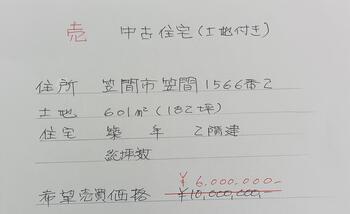 売 中古住宅(土地付き)
住所 笠間市笠間1566番2
土地 601m²(182坪)
住宅 築 年 2階建
総坪数
¥6,000,000-
希望売買価格 ¥10,000,000-